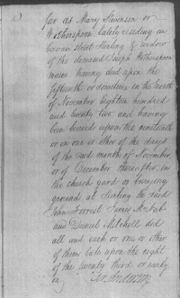 for as Mary Stevenson or
Wotherspoon lately residing in
street Stirling & widow
of the deceased Joseph Wotherspoon
mason having died upon the
fifteenth or sometime in the month
of November eighteen hundred
and twenty two and having
been buried upon the nineteenth
or in one or other of the days
of the said month of November,
or of December thereafter in
the church yard or burying
ground at Stirling the said
John Forrest James McNab
and Daniel Mitchell did
all and each or one or other
of them late upon the night
of the twenty third or early
in